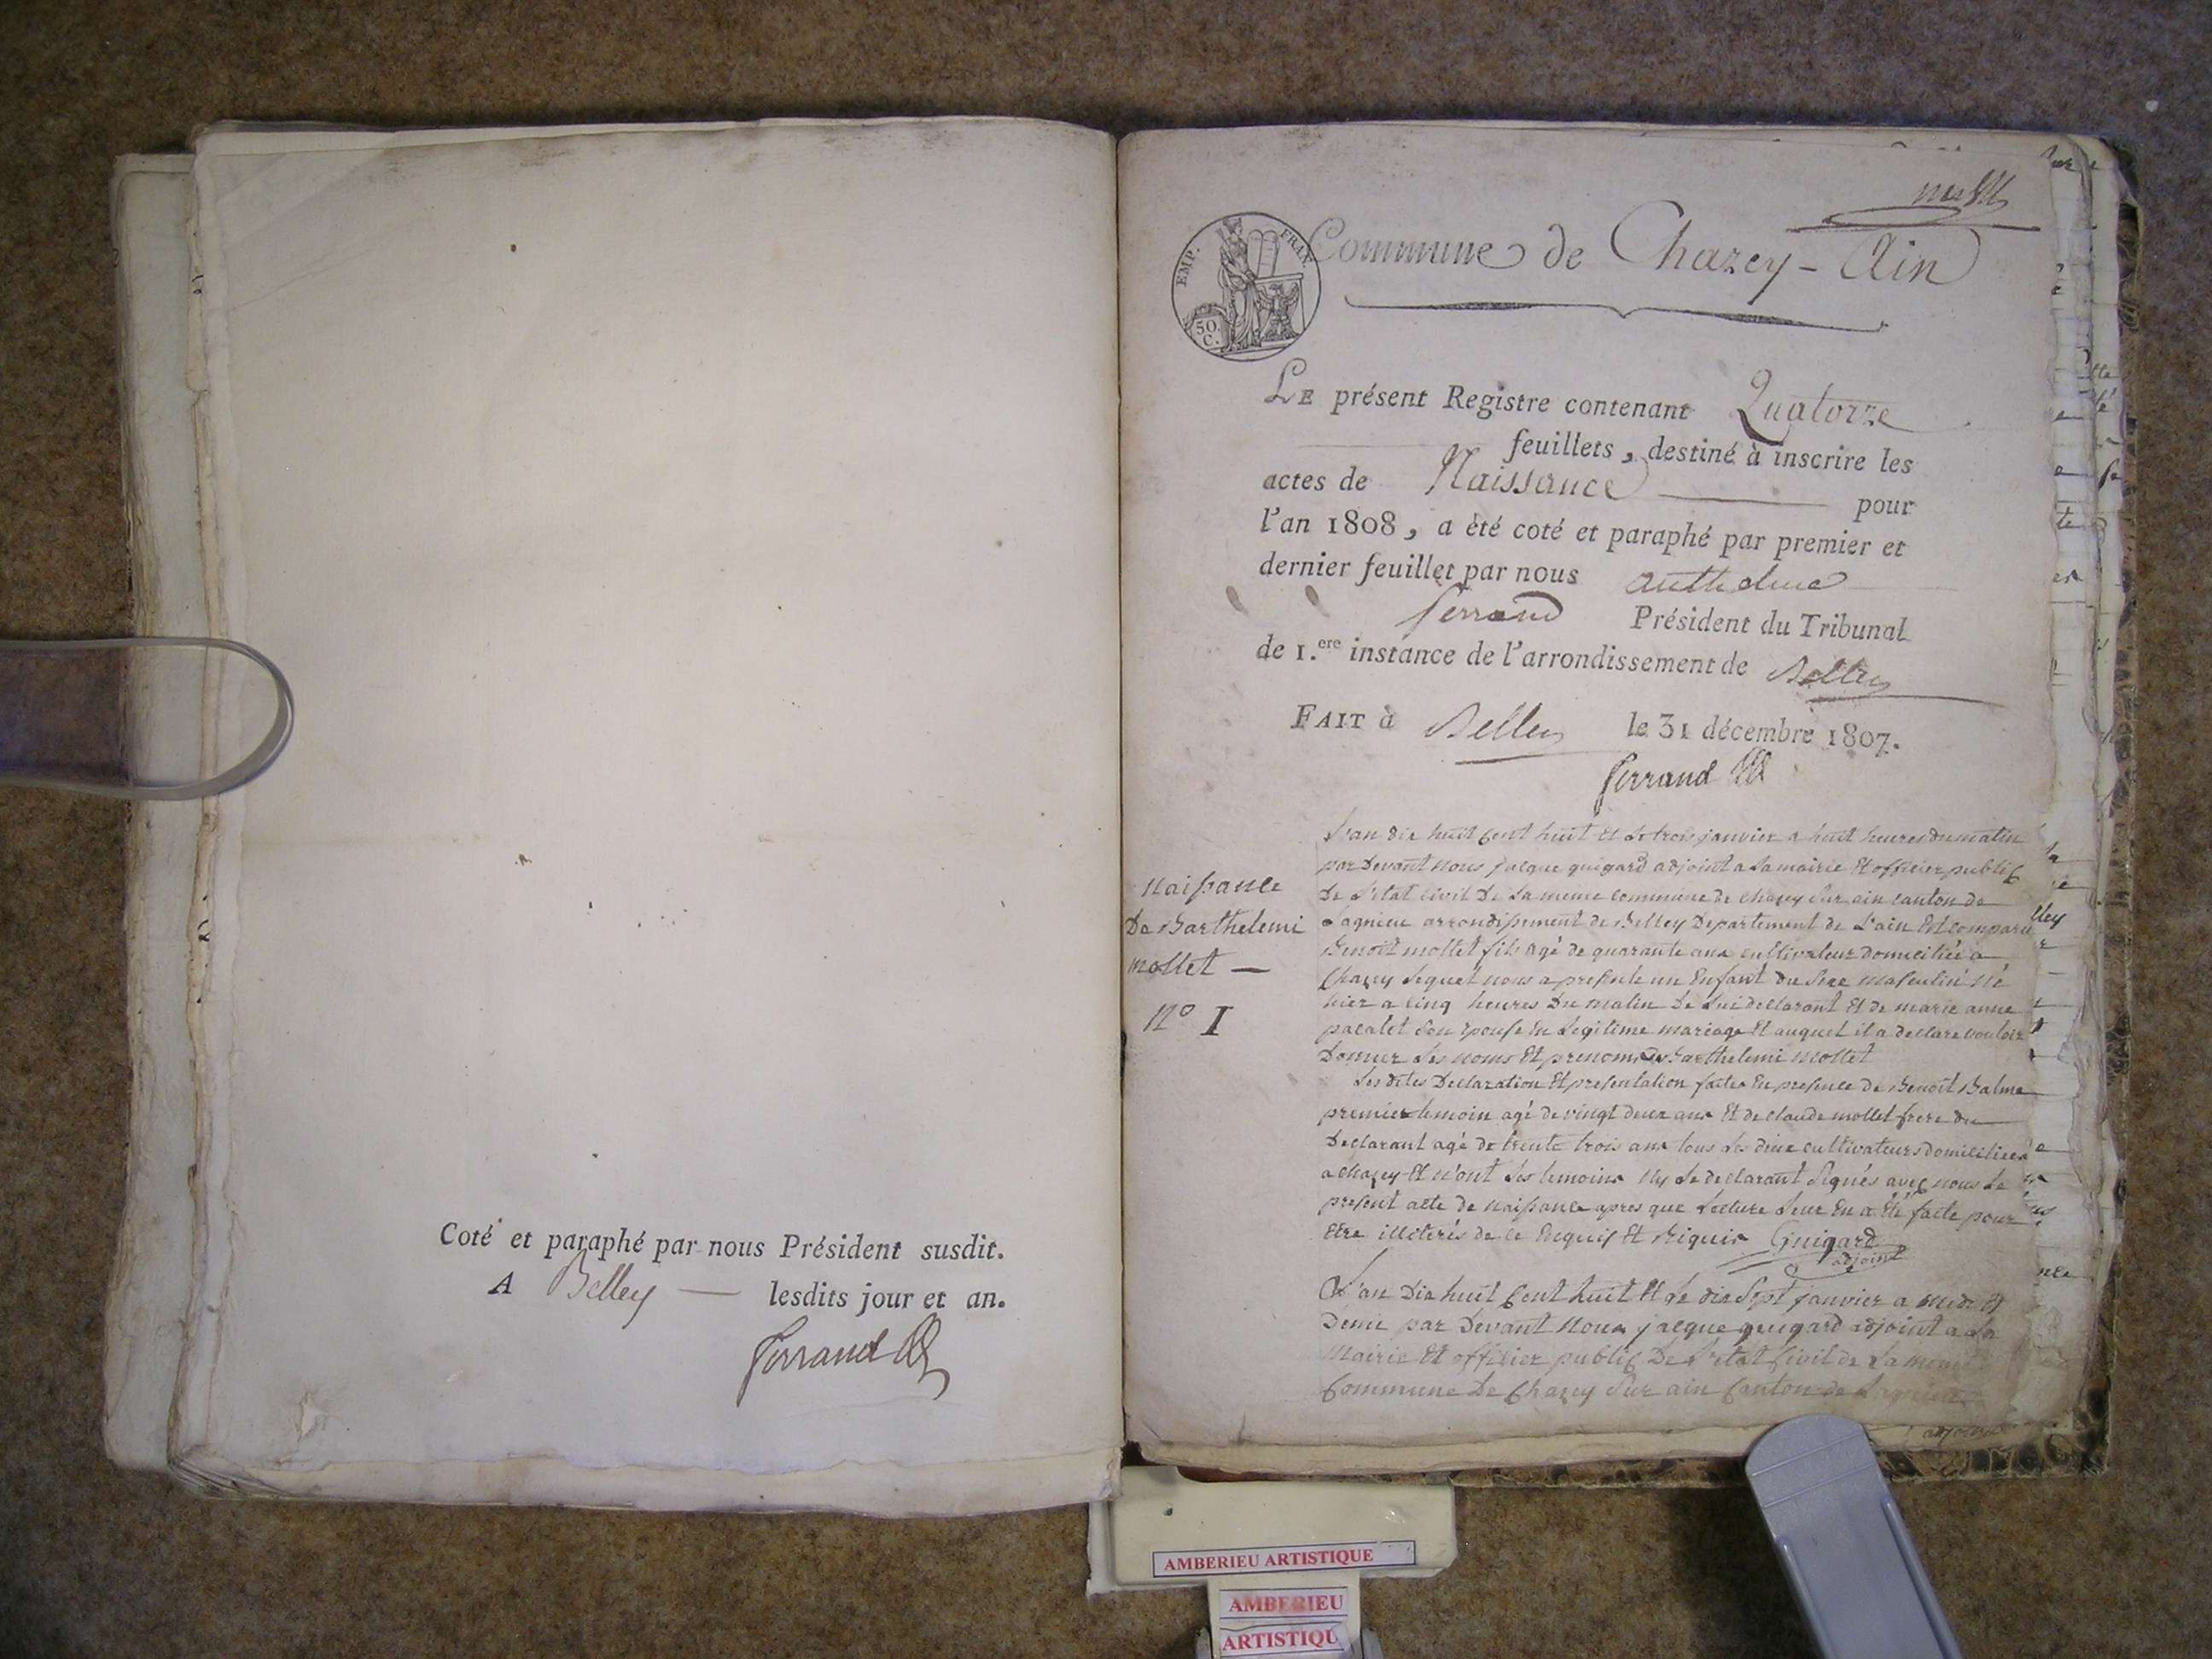 Coté et paraphé par nous Président susdit.
A Belley lesdits jour et an.
Ferrand
EMP. FRAN.
50.
C.
Commune de Chazey-Ain
LE présent Registre contenant Quatorze
feuillets, destiné à inscrire les
actes de Naissance pour
l'an 1808, a été coté et paraphé par premier et
dernier feuillet par nous anthelme
ferrand Président du Tribunal
de 1.ere instance de l'arrondissement de Belley
FAIT à Belley le 31 décembre 1807.
ferrand
Naissance
De Barthelemi
mollet
N° 1
L'an dix huit cent huit Et Le trois janvier a huit heures du matin
par Devant nous jacque guigard adjoint a La mairie Et officier public
De L'etat Civil De La meme commune de chazey sur ain canton de
Lagnieu arrondissement de Belley Departement de L'ain Est comparu
Benoit mollet fils agé de quarante ans cultivateur domicilié a
Chazey Lequel nous a presenté un Enfant du sexe masculin né
hier a cinq heures Du matin De Lui declarant Et de marie anne
pacalet son Epouse En Legitime mariage Et auquel il a declaré vouloir
Donner Les noms Et prenoms de Barthelemi mollet
Les dites Declaration Et presentation faites En presence de Benoit Balme
premier temoin agé de vingt deux ans Et de claude mollet frere du
Declarant agé de trente trois ans tous Les deux cultivateurs domiciliés
a chazey Et n'ont Les temoins ny Le declarant signés avec nous Le
present acte de naissance apres que Lecture Leur En a Eté faite pour
Etre illiterés de ce Enquis Et Requis Guigard
adjoint
L'an Dix huit Cent huit Et Le dix sept janvier a midi Et
Demi par Devant nous jacque guigard adjoint a La
Mairie Et officier public De L'etat Civil de La meme
Commune De Chazey sur ain Canton de Lagnieu
AMBERIEU ARTISTIQUE
AMBERIEU
ARTISTIQU